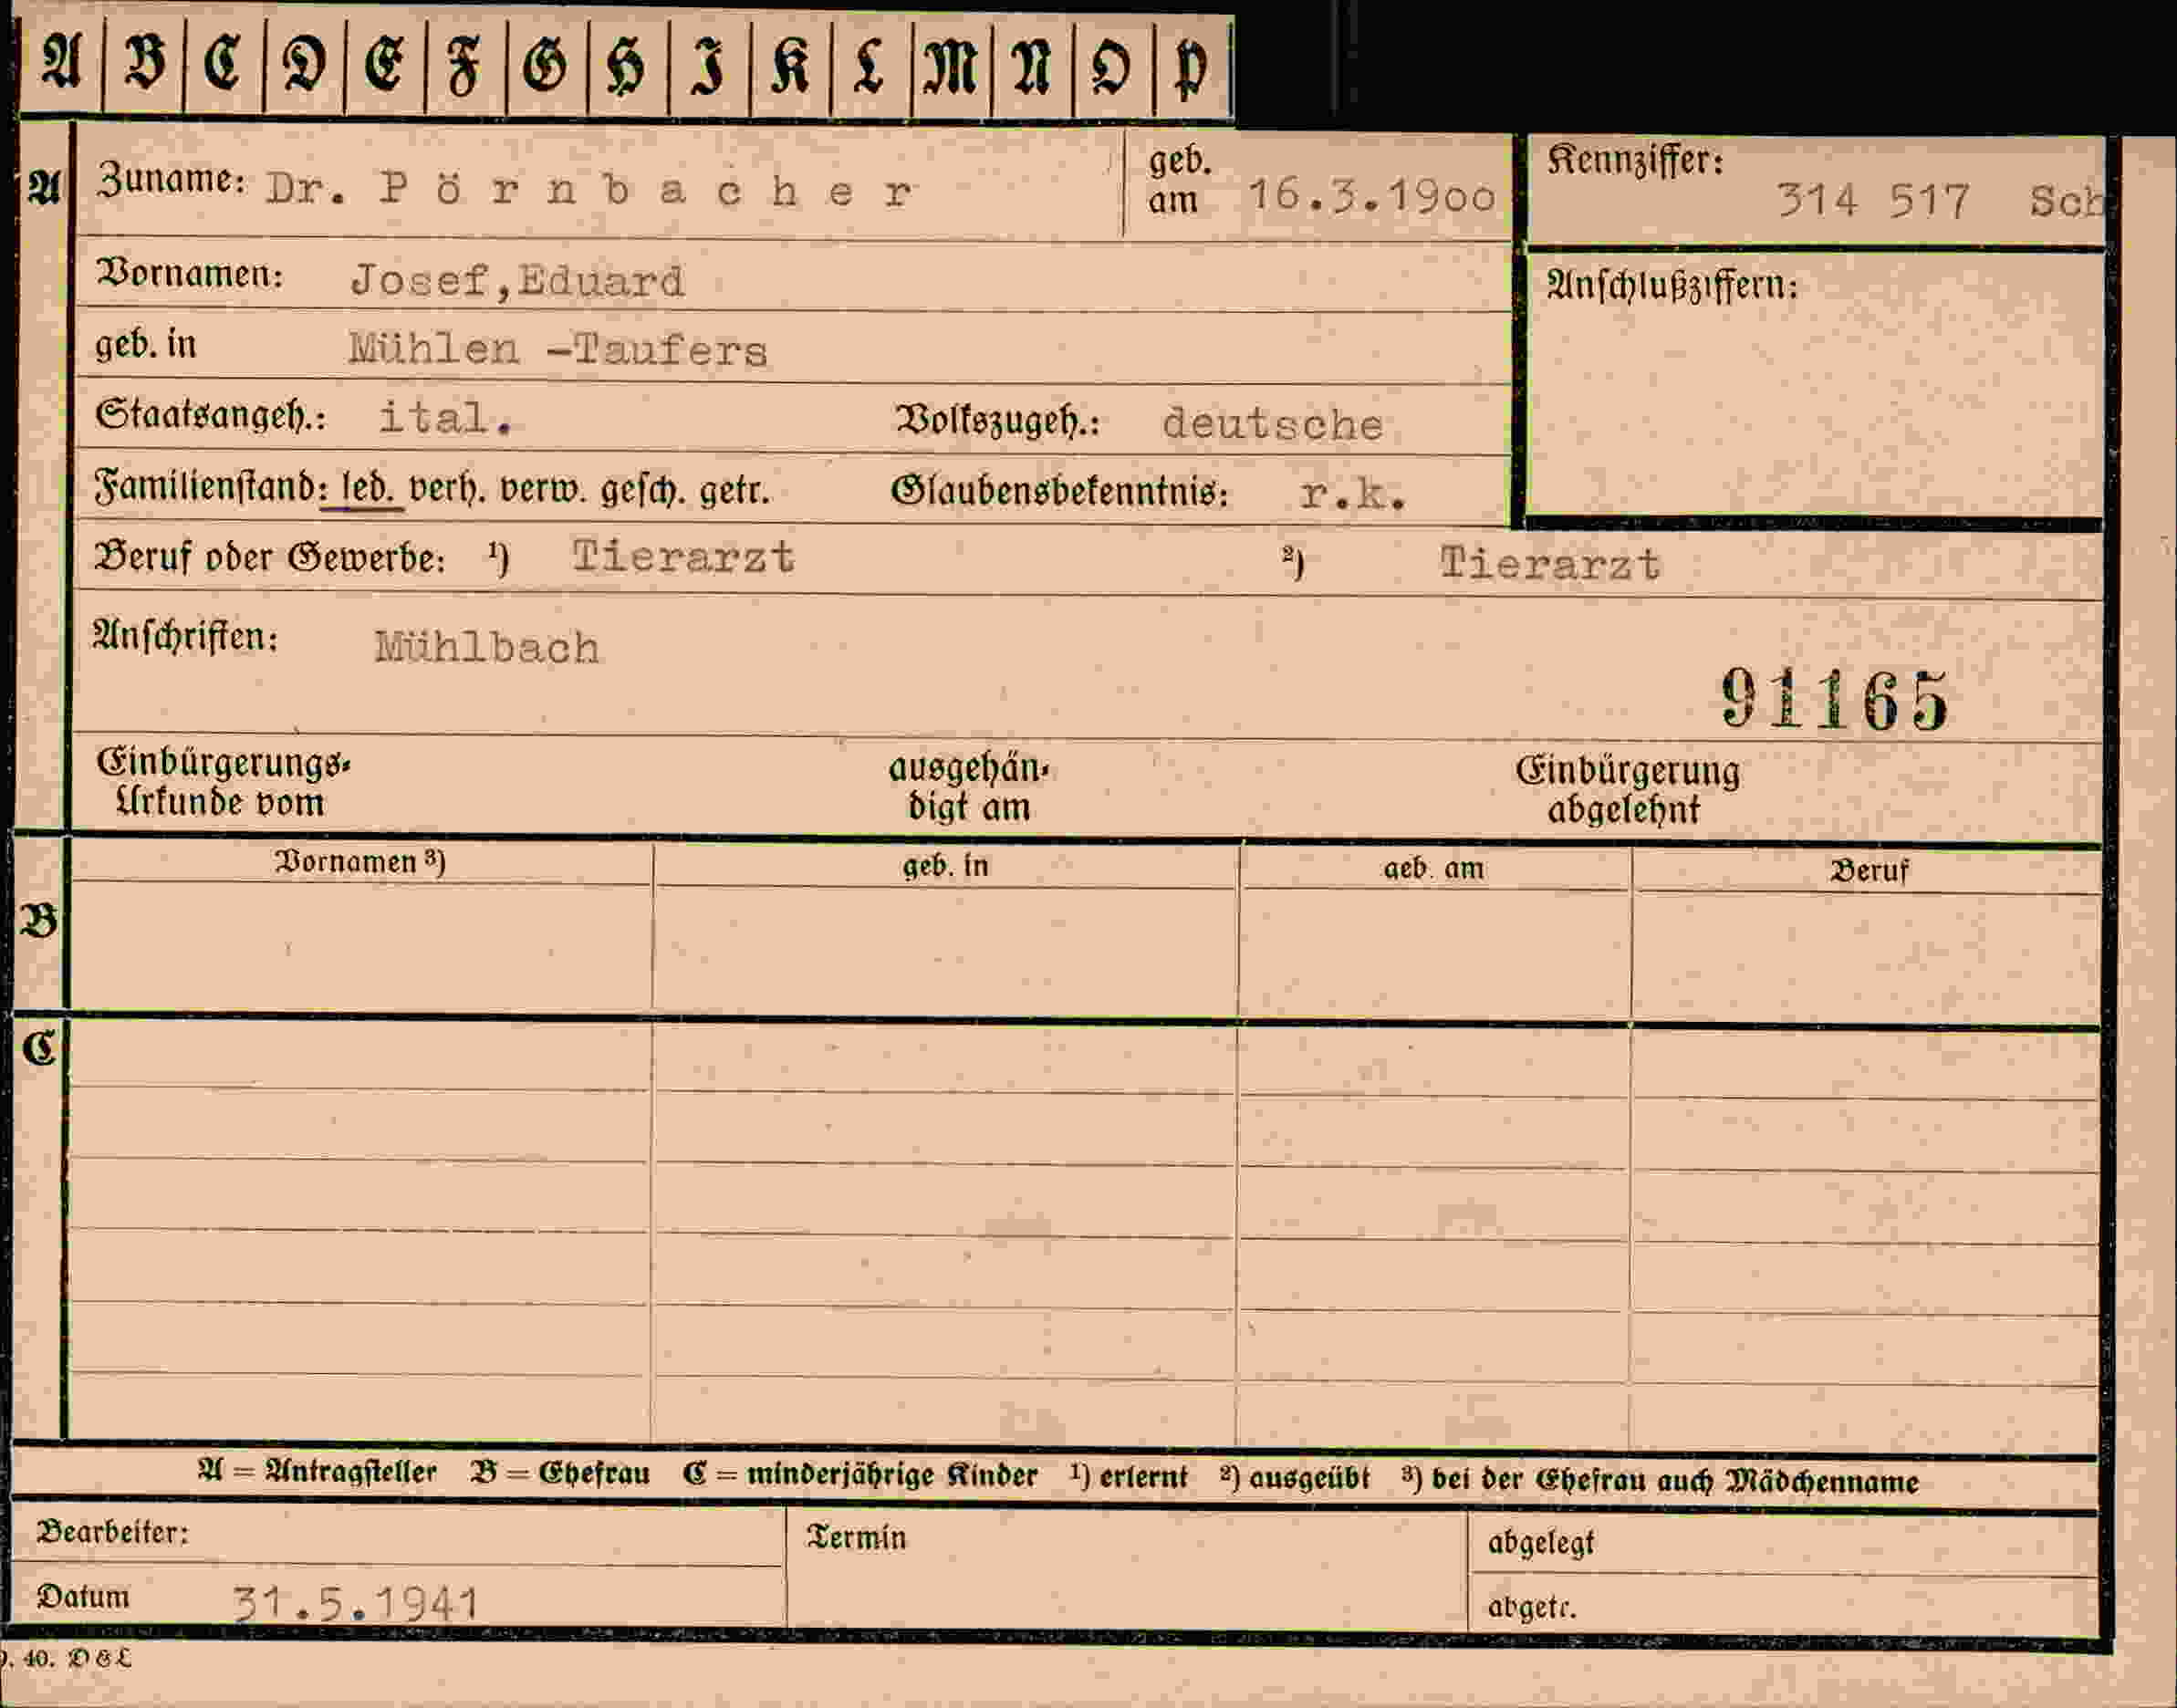 A B C D E F G H I K L M N O P
A Zuname: Dr. P ö r n b a c h e r geb. am 16.3.1900 Kennziffer: 314 517 Sch
Vornamen: Josef,Eduard Anschlußziffern:
geb. in Mühlen -Taufers
Staatsangeh.: ital. Volkszugeh.: deutsche
Familienstand: led. verh. verw. gesch. getr. Glaubensbekenntnis: r.k.
Beruf oder Gewerbe: ¹) Tierarzt ²) Tierarzt
Anschriften: Mühlbach
91165
Einbürgerungs- ausgehän- Einbürgerung
Urkunde vom digt am abgelehnt
Vornamen ³) geb. in geb. am Beruf
B
C
A = Antragsteller B = Ehefrau C = minderjährige Kinder ¹) erlernt ²) ausgeübt ³) bei der Ehefrau auch Mädchenname
Bearbeiter: Termin abgelegt
Datum 31.5.1941 abgetr.
. 40. D & L